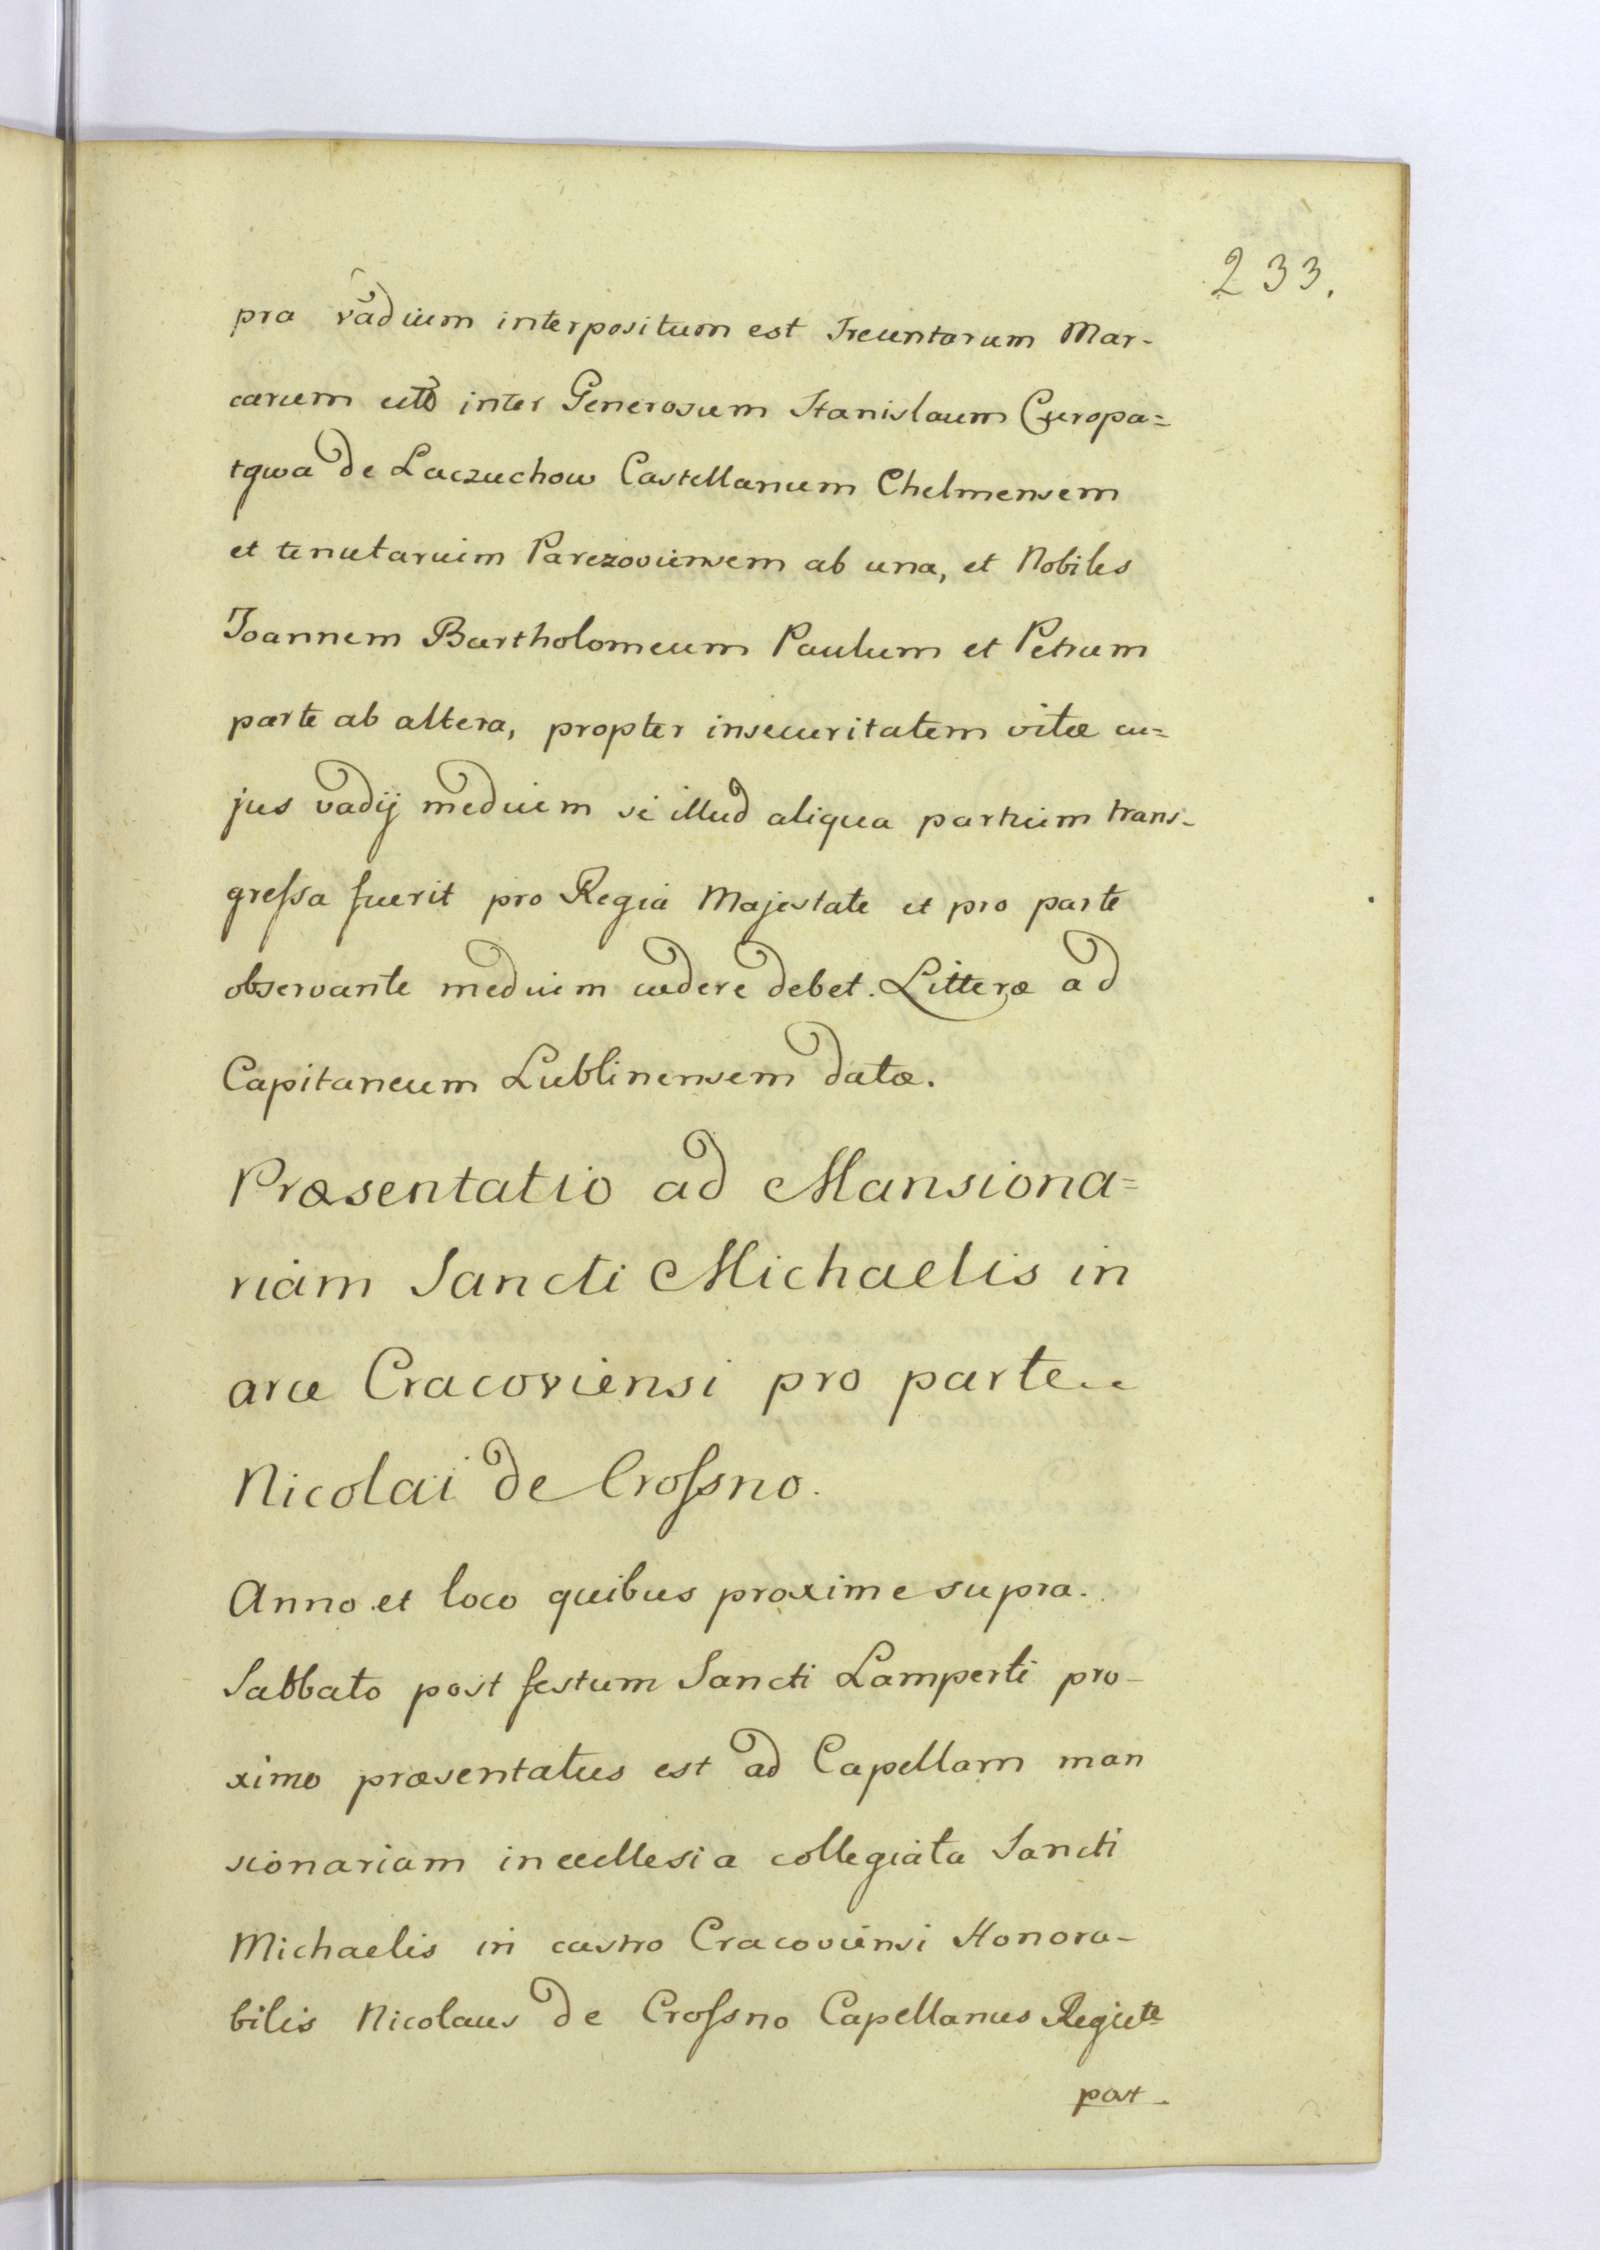 233.
pra vadium interpositum est Trecentarum Mar-
carum inter Generosum Stanislaum Curopa=
tqwa de Laczuchow Castellanum Chelmensem
et tenutarium Parczoviensem ab una, et Nobiles
Joannem Bartholomeum Paulum et Petrum
parte ab altera, propter insecuritatem vitæ cu=
jus vadij medium si illud aliqua partium trans-
greſsa fuerit pro Regia Majestate et pro parte
observante medium cedere debet. Litteræ ad
Capitaneum Lublinensem datæ.
Præsentatio ad Mansiona=
riam Sancti Michaelis in
arce Cracoviensi pro parte
Nicolai de Croſsno.
Anno et loco quibus proxime supra.
Sabbato post festum Sancti Lamperti pro-
ximo præsentatus est ad Capellam man
sionariam in ecclesia collegiata Sancti
Michaelis in castro Cracoviensi Honora-
bilis Nicolaus de Croſsno Capellanus
post-